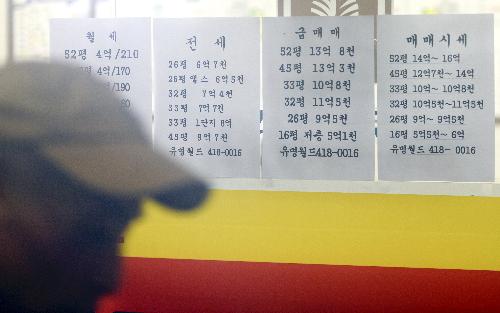 월세
52평 4억/210
평 4억/170
/190
60
전세
26평 6억7천
26평 엘스 6억5천
32평 7억4천
33평 7억7천
33평 1단지 8억
45평 8억7천
유명월드 418-0016
급매매
52평 13억 8천
45평 13억 3천
33평 10억8천
32평 11억5천
26평 9억5천
16평 저층 5억1천
유영월드418-0016
매매시세
52평 14억~16억
45평 12억7천~14억
33평 10억~10억8천
32평 10억5천~11억5천
26평 9억~9억5천
16평 5억5천~6억
유명월드 418-0016